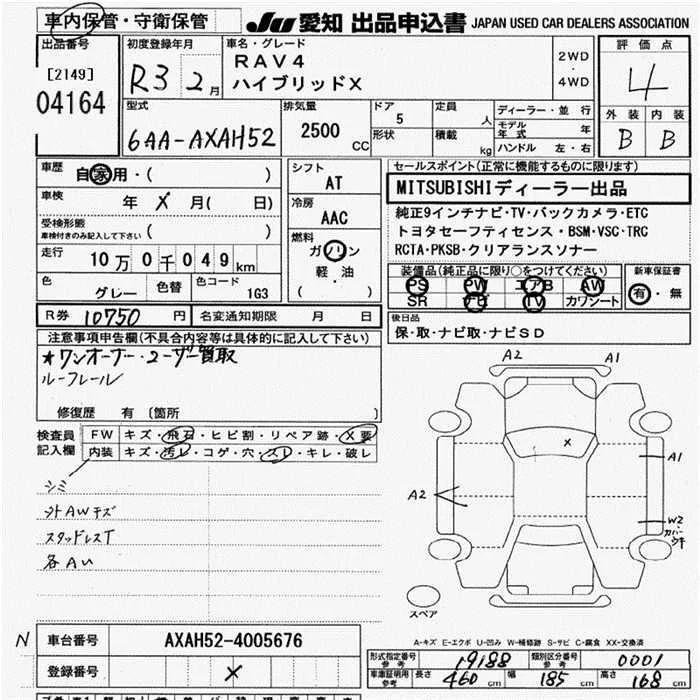 車内保管・守衛保管
JU 愛知 出品申込書 JAPAN USED CAR DEALERS ASSOCIATION
出品番号
[2149]
04164
初度登録年月
R3 2月
車名・グレード
RAV4
ハイブリッドX
2WD
・
4WD
評価点
4
外装 内装
B B
型式
6AA-AXAH52
排気量
2500
CC
ドア
5
形状
定員
人
積載
kg
ディーラー・並行
モデル年式 年
ハンドル 左・右
車歴
自家用・( )
車検
年 X 月( 日)
受検形態
(車検付きのみ記入して下さい)
( )
走行
10万0千049km
色
グレー
色替
色コード
1G3
シフト
AT
冷房
AAC
燃料
ガソリン
軽・油
( )
セールスポイント(正常に機能するものに限ります)
MITSUBISHIディーラー出品
純正9インチナビ・TV・バックカメラ・ETC
トヨタセーフティセンス・BSM・VSC・TRC
RCTA・PKSB・クリアランスソナー
装備品(純正品に限り○をつけてください)
PS PW エアB AW
SR ナビ TV カワシート
新車保証書
有・無
後日品
保・取・ナビ取・ナビSD
R券 10750 円
名変通知期限 月 日
注意事項申告欄(不具合内容等は具体的に記入して下さい)
★ワンオーナー・ユーザー買取
ルーフレール
修復歴 有 (箇所 )
検査員
記入欄
FW キズ・飛石・ヒビ割・リペア跡・X要
内装 キズ・汚レ・コゲ・穴・スレ・キレ・破レ
シミ
外AWキズ
スタッドレスT
各AU
A2 A1
X
A1
A2
W2
カバー
ウキ
スペア
A-キズ E-エクボ U-凹み W-補修跡 S-サビ C-腐食 XX-交換済
N
車台番号
AXAH52-4005676
登録番号
X
形式指定番号
参考
19188
類別区分番号
参考
0001
車庫証明用
参考
長さ 460 cm
幅 185 cm
高さ 168 cm